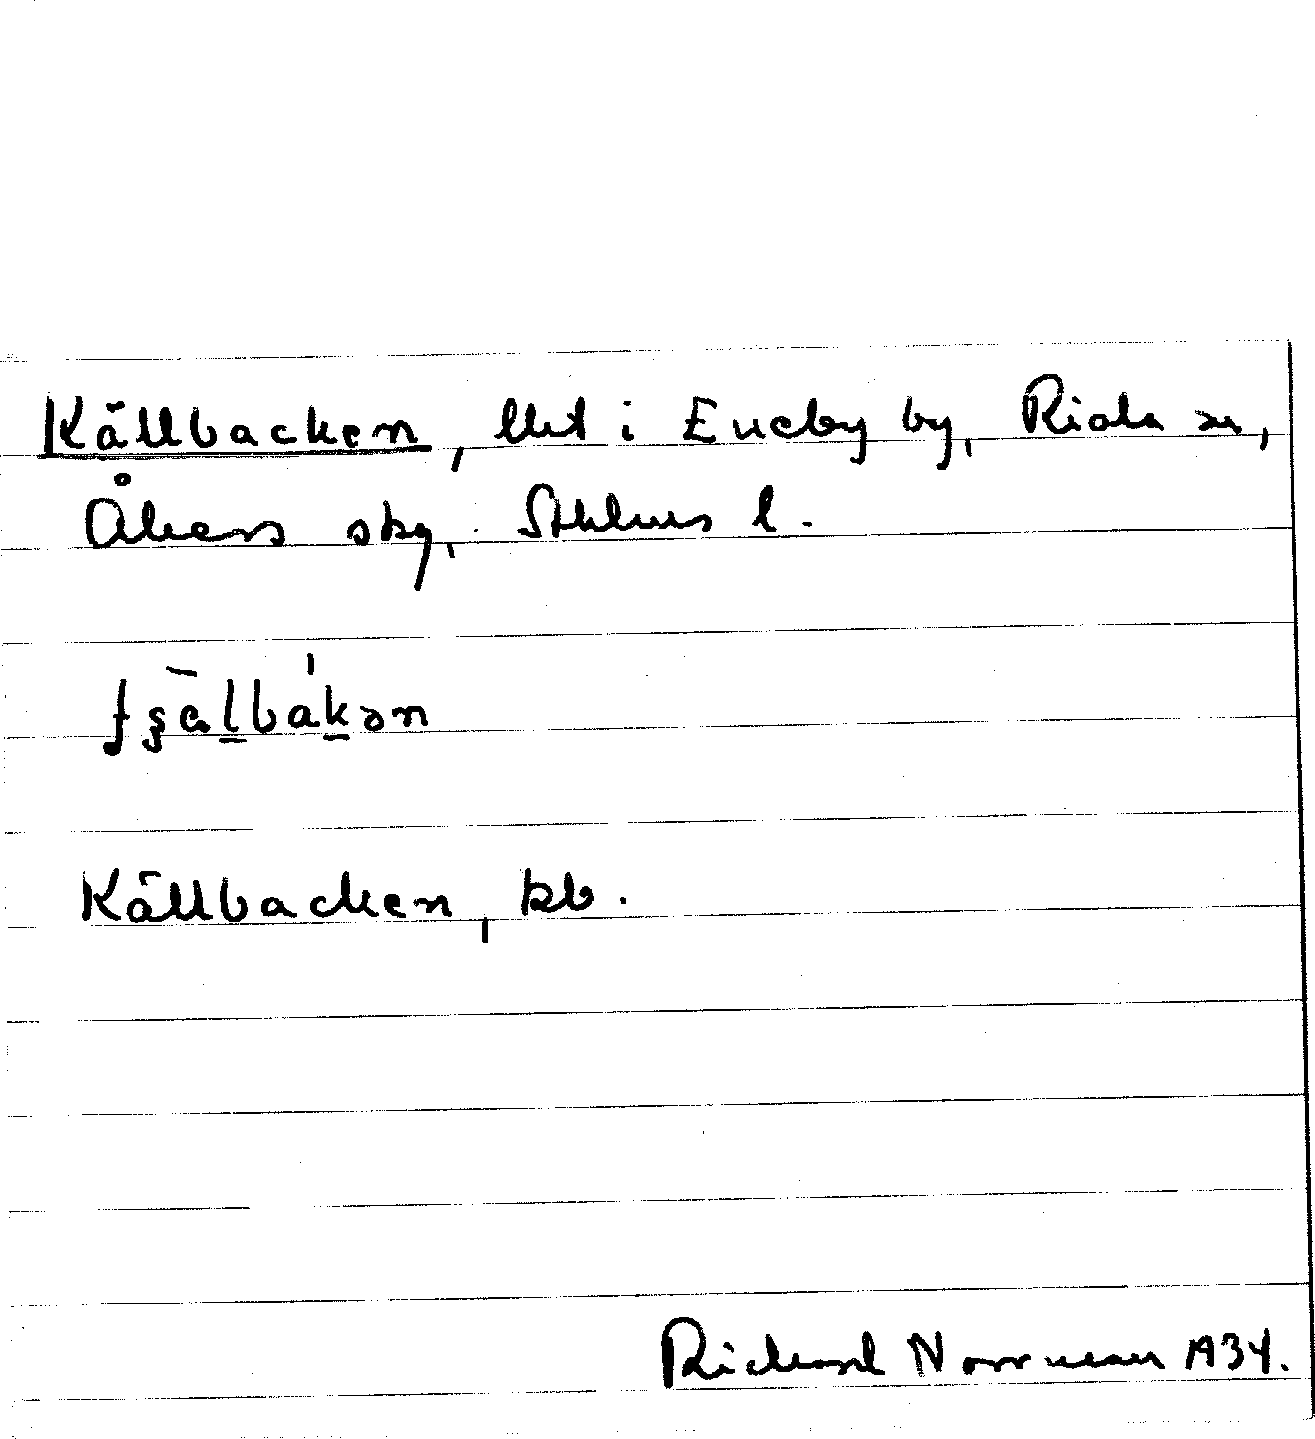 Källbacken, lht i Eneby by, Riala sn,
Åkers skg, Sthlms l.
Källbacken, kb.
Richard Norrman 1934.